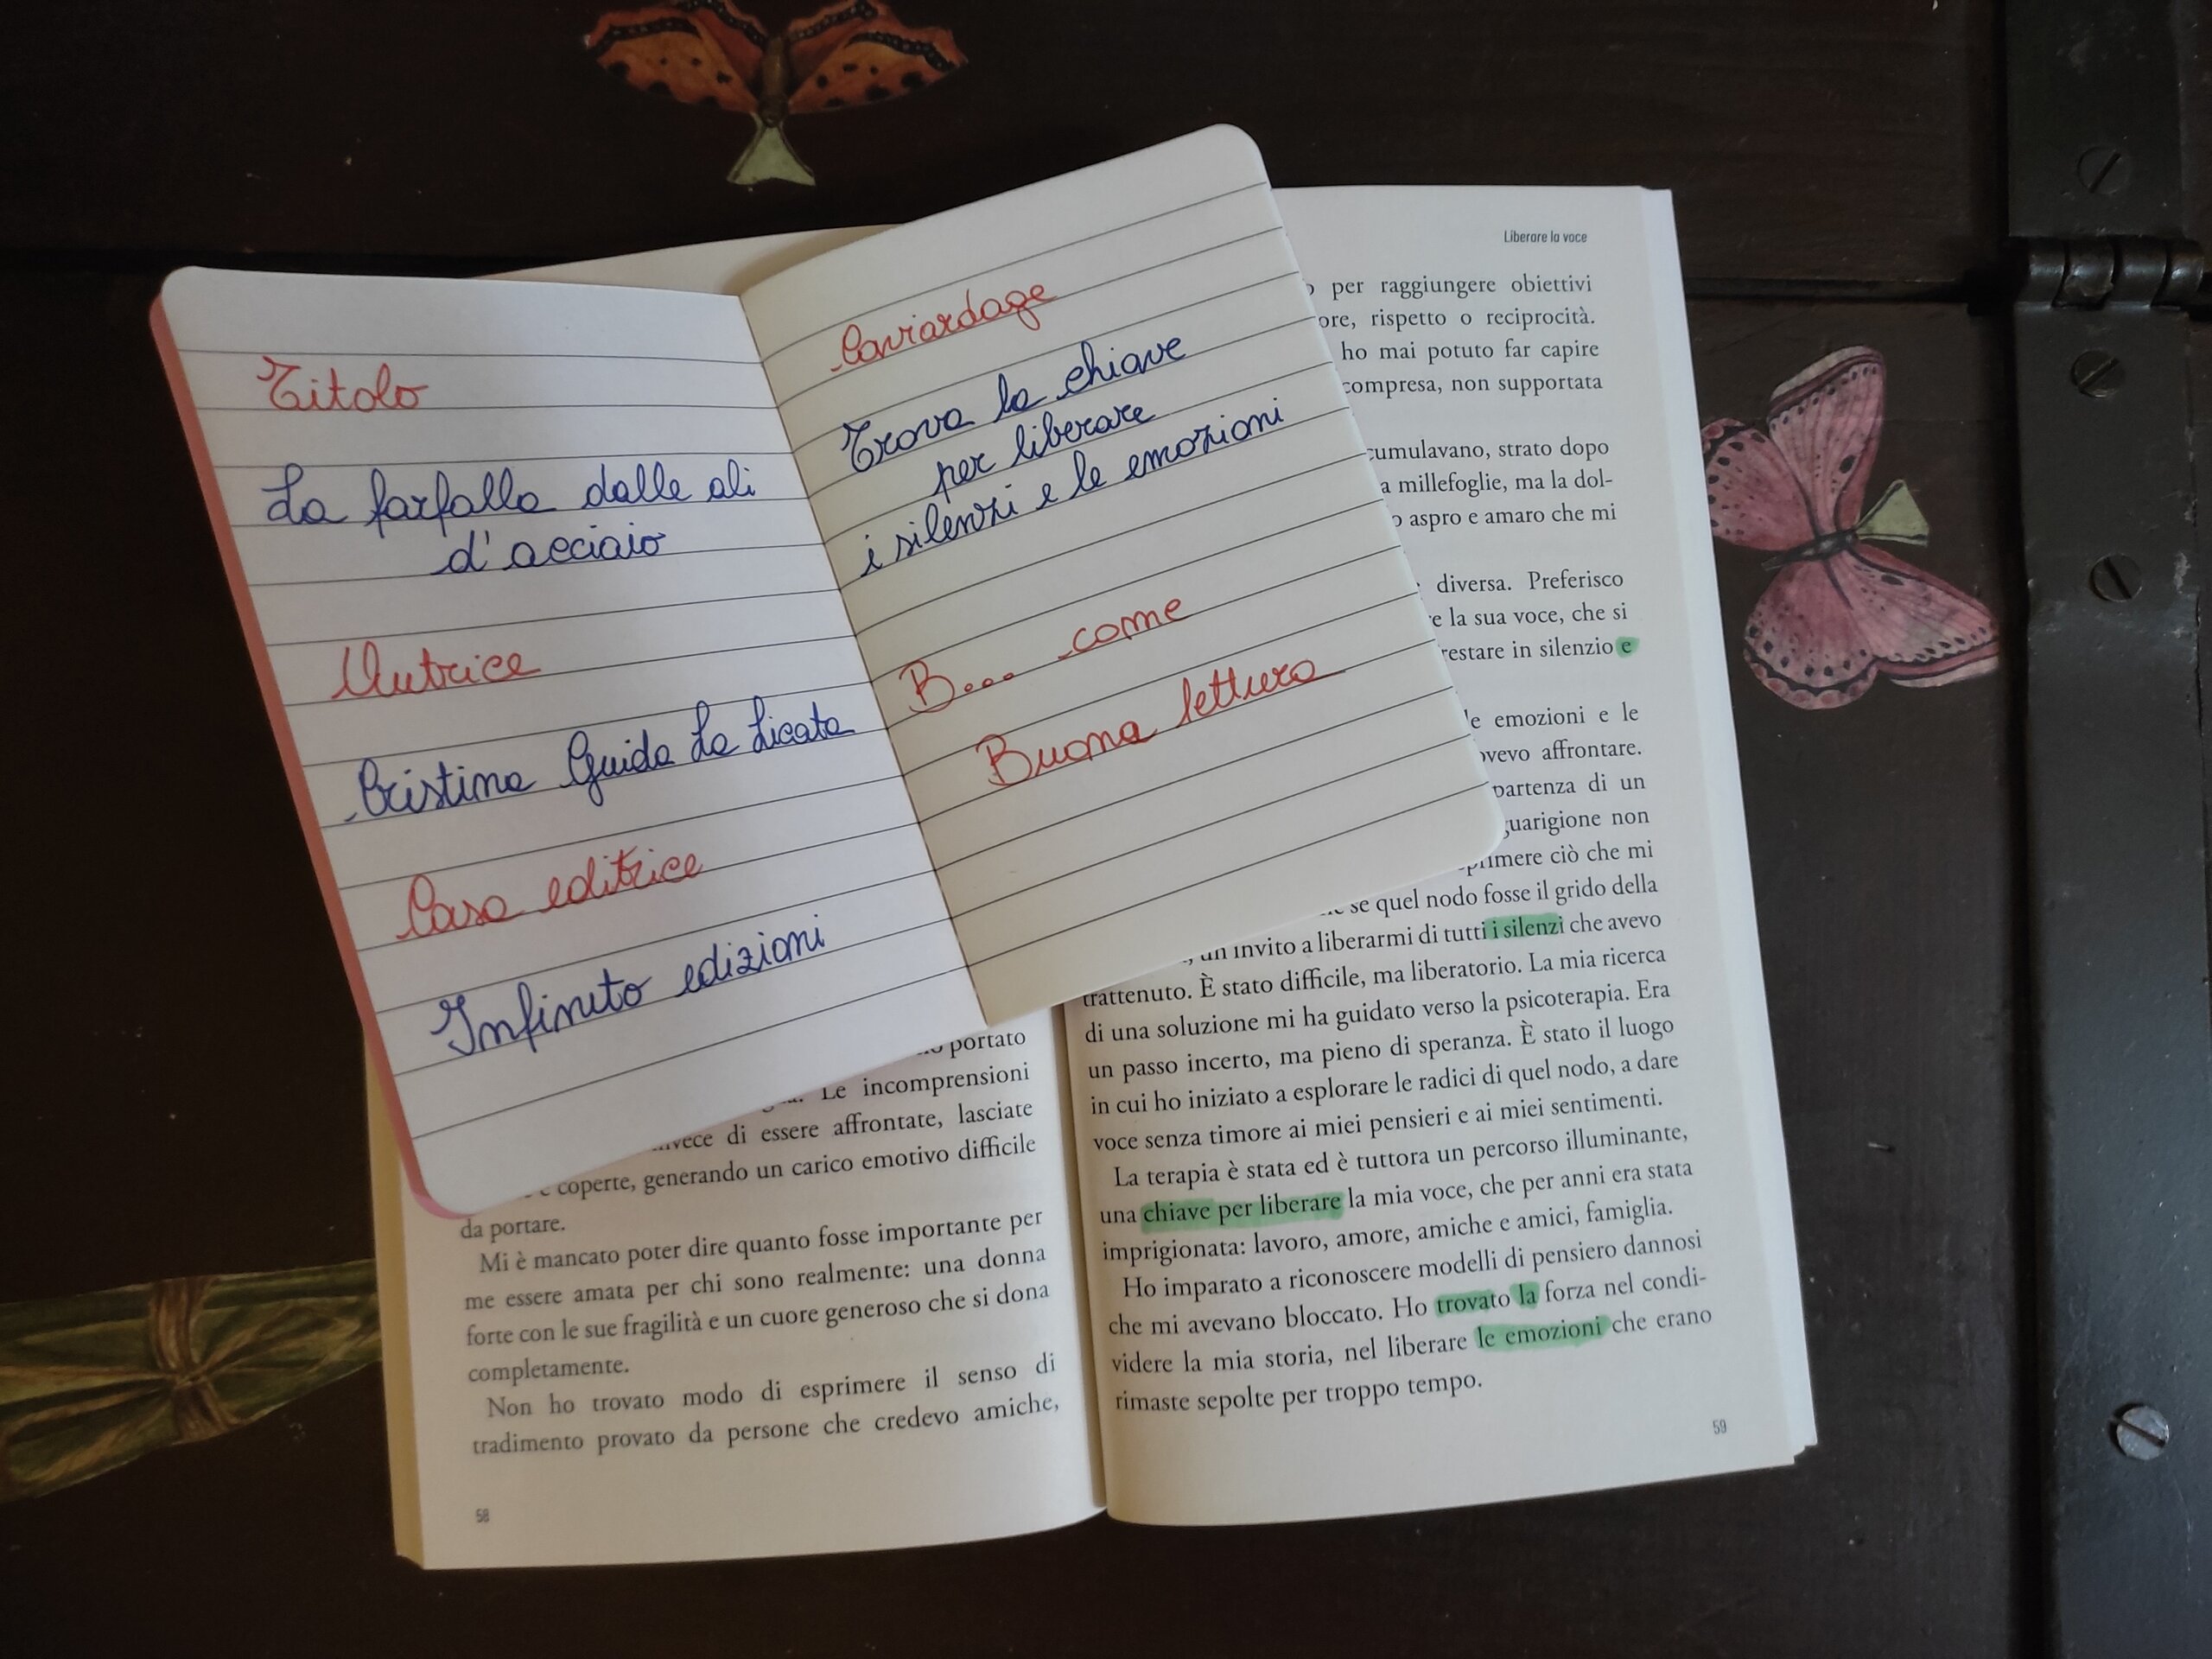 Titolo
La farfalla dalle ali
d'acciaio
Autrice
Cristina Guida La Licata
Casa editrice
Infinito edizioni
Caviardage
Trova la chiave
per liberare
i silenzi e le emozioni
B... come
Buona lettura
portato
Le incomprensioni
di essere affrontate, lasciate
coperte, generando un carico emotivo difficile
da portare.
Mi è mancato poter dire quanto fosse importante per
me essere amata per chi sono realmente: una donna
forte con le sue fragilità e un cuore generoso che si dona
completamente.
Non ho trovato modo di esprimere il senso di
tradimento provato da persone che credevo amiche,
58
Liberare la voce
per raggiungere obiettivi
rispetto o reciprocità.
ho mai potuto far capire
compresa, non supportata
strato dopo
a millefoglie, ma la dol-
aspro e amaro che mi
diversa. Preferisco
la sua voce, che si
restare in silenzio e
le emozioni e le
affrontare.
partenza di un
guarigione non
ciò che mi
se quel nodo fosse il grido della
un invito a liberarmi di tutti i silenzi che avevo
trattenuto. È stato difficile, ma liberatorio. La mia ricerca
di una soluzione mi ha guidato verso la psicoterapia. Era
un passo incerto, ma pieno di speranza. È stato il luogo
in cui ho iniziato a esplorare le radici di quel nodo, a dare
voce senza timore ai miei pensieri e ai miei sentimenti.
La terapia è stata ed è tuttora un percorso illuminante,
una chiave per liberare la mia voce, che per anni era stata
imprigionata: lavoro, amore, amiche e amici, famiglia.
Ho imparato a riconoscere modelli di pensiero dannosi
che mi avevano bloccato. Ho trovato la forza nel condi-
videre la mia storia, nel liberare le emozioni che erano
rimaste sepolte per troppo tempo.
59